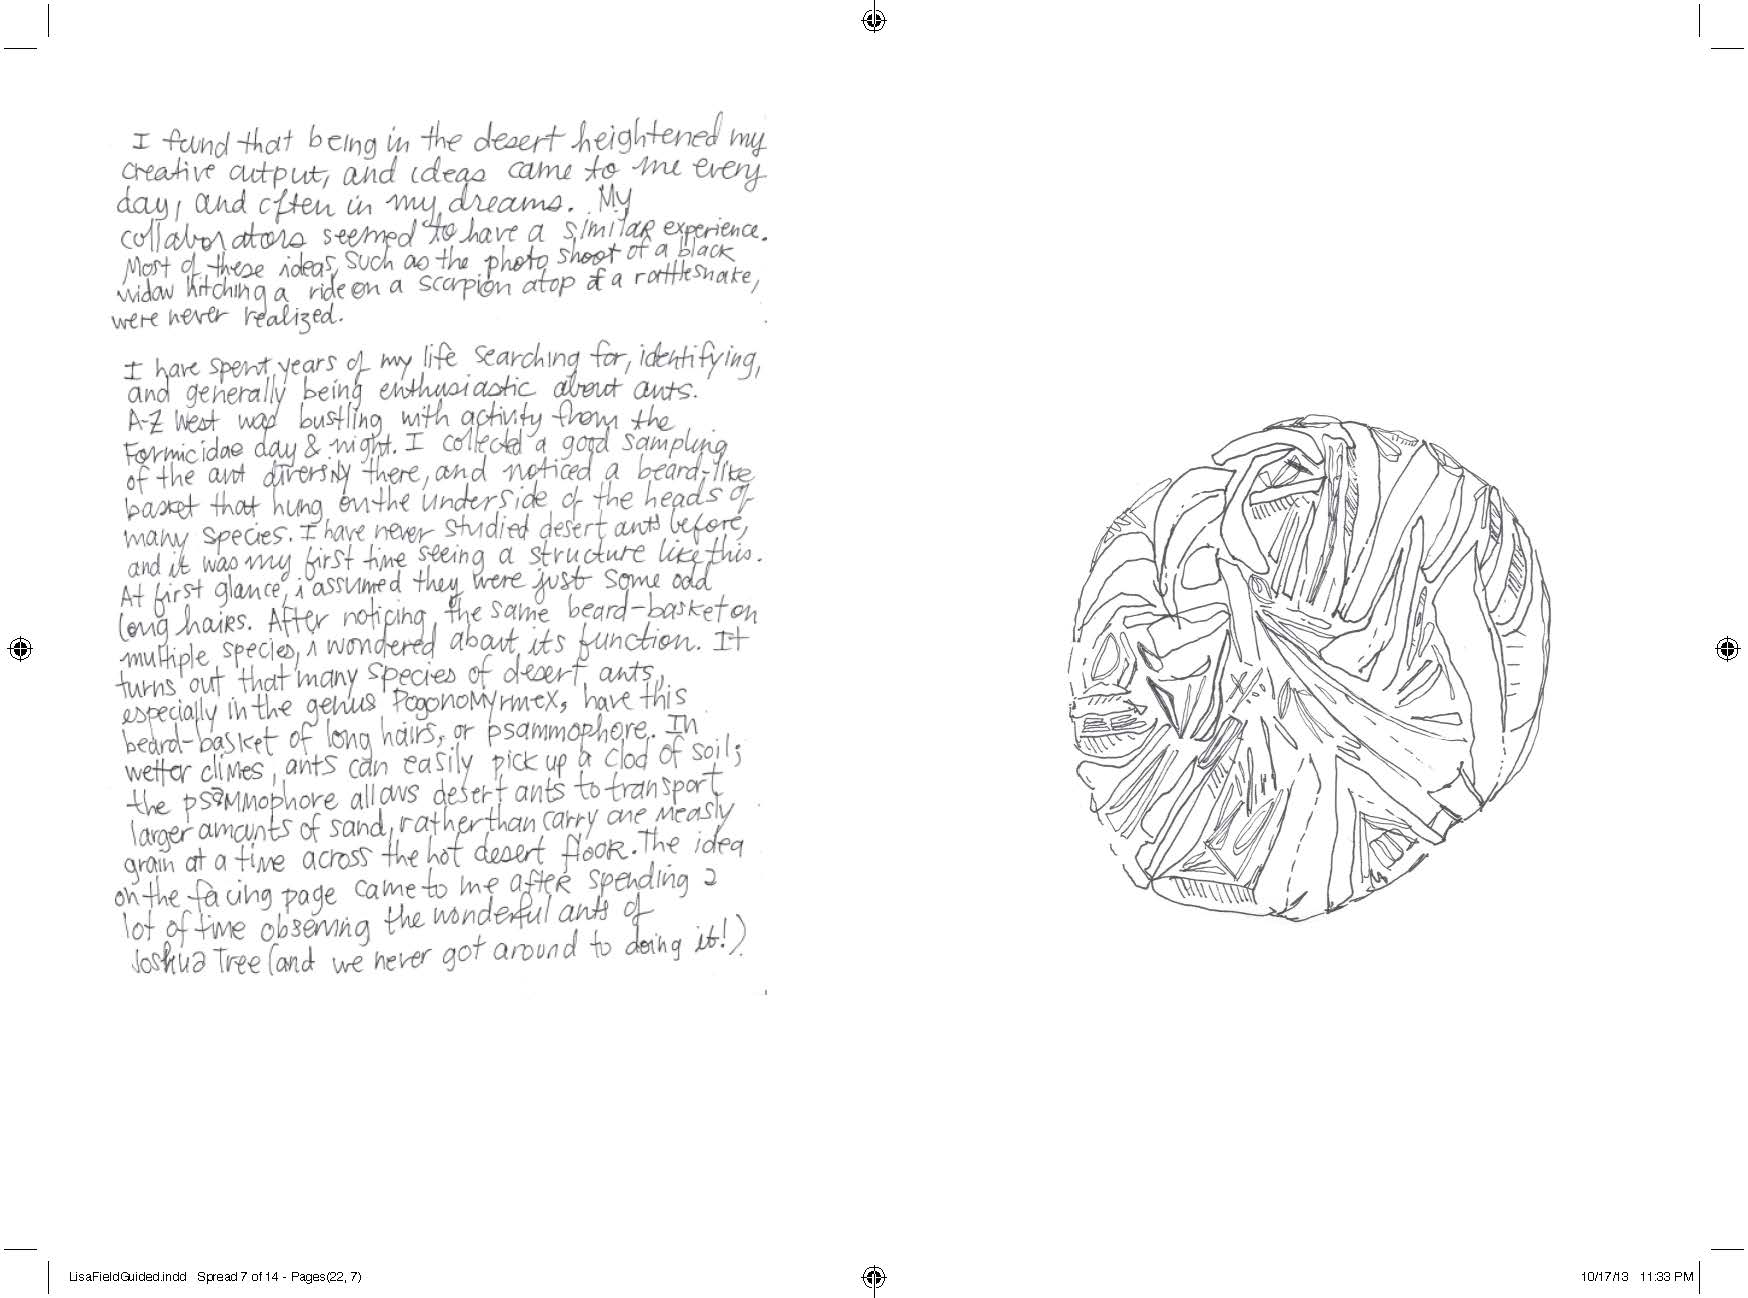 I found that being in the desert heightened my
creative output, and ideas came to me every
day, and often in my dreams. My
collaborators seemed to have a similar experience.
Most of these ideas, such as the photo shoot of a black
widow hitching a ride on a scorpion atop of a rattlesnake,
were never realized.
I have spent years of my life searching for, identifying,
and generally being enthusiastic about ants.
A-Z West was bustling with activity from the
Formicidae day & night. I collected a good sampling
of the ant diversity there, and noticed a beard-like
basket that hung on the underside of the heads of
many species. I have never studied desert ants before,
and it was my first time seeing a structure like this.
At first glance, i assumed they were just some odd
long hairs. After noticing the same beard-basket on
multiple species, i wondered about its function. It
turns out that many species of desert ants,
especially in the genus Pogonomyrmex, have this
beard-basket of long hairs, or psammophore. In
wetter climes, ants can easily pick up a clod of soil;
the psammophore allows desert ants to transport
larger amounts of sand, rather than carry one measly
grain at a time across the hot desert floor. The idea
on the facing page came to me after spending a
lot of time observing the wonderful ants of
Joshua Tree (and we never got around to doing it!)
LisaFieldGuided.indd   Spread 7 of 14 - Pages(22, 7)
10/17/13   11:33 PM